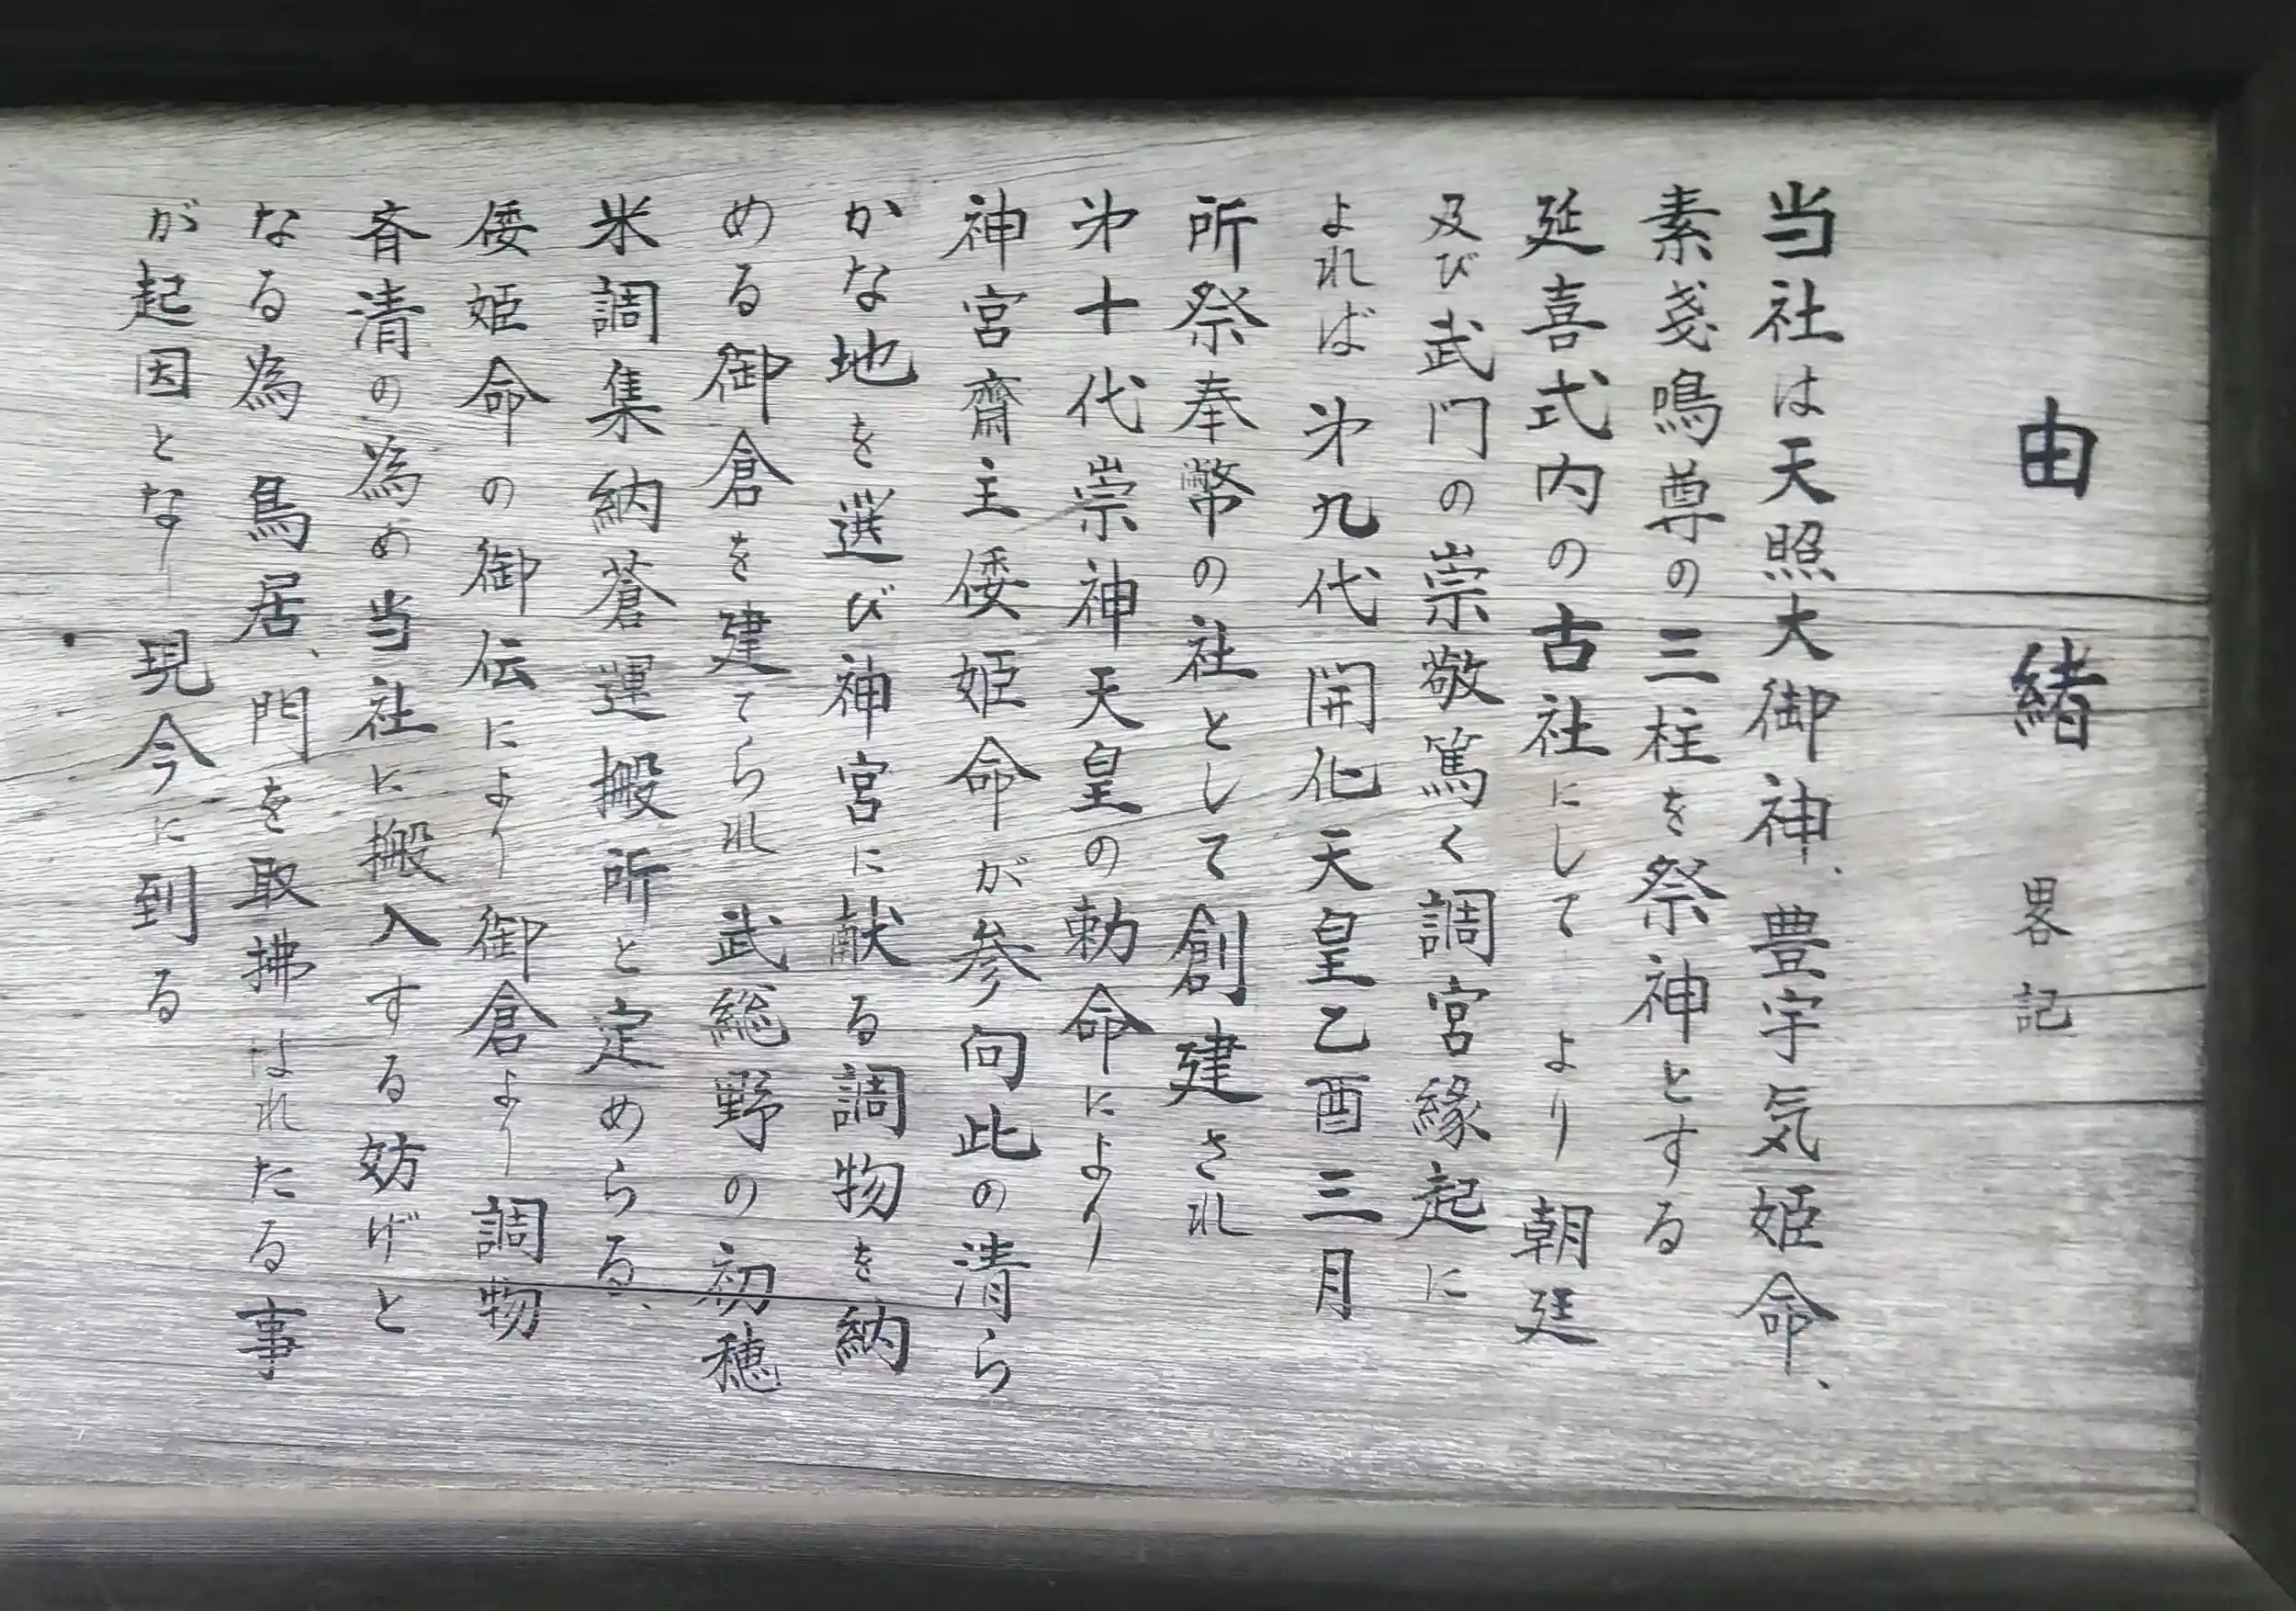 由緒 畧記
当社は天照大御神、豊宇気姫命、
素戔鳴尊の三柱を祭神とする
延喜式内の古社にして より 朝廷
及び武門の崇敬篤く調宮縁起に
よれば㐧九代開化天皇乙酉三月
所祭奉幣の社として創建され
㐧十代崇神天皇の勅命により
神宮齋主倭姫命が参向此の清ら
かな地を選び神宮に献る調物を納
める御倉を建てられ 武総野の初穂
米調集納蒼運搬所と定めらる、
倭姫命の御伝により 御倉より調物
斉清の為め当社に搬入する妨げと
なる為 鳥居、門を取拂はれたる事
が起因となり 現今に到る